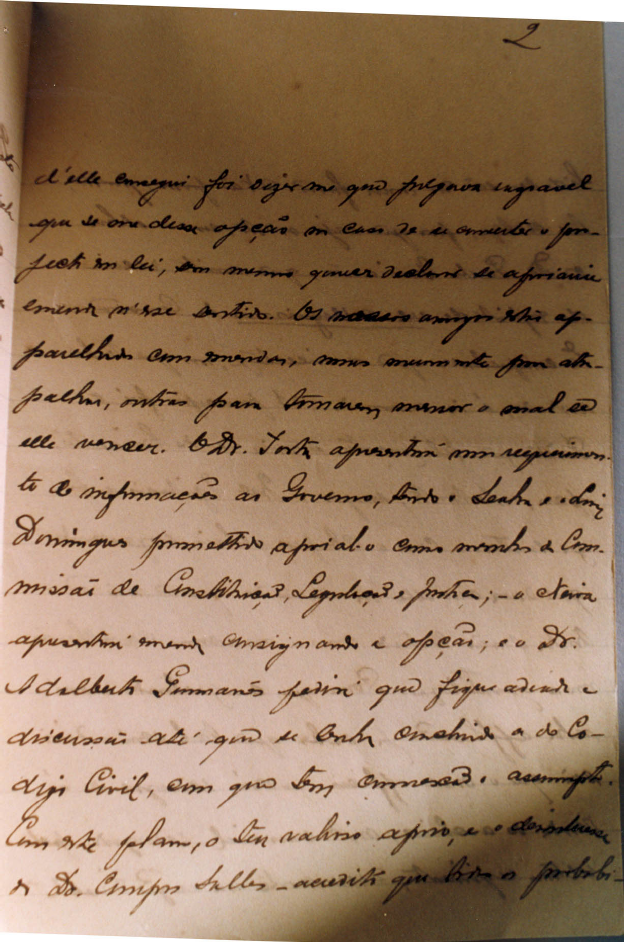 2
d'elle consegui foi dizer-me que julgava rasoavel
que se nos desse opção no caso de se converter o pro-
jecto em lei, sem mesmo querer declarar se apoiaria
emenda n'esse sentido. Os nossos amigos estão ap-
parelhados com emendas, umas meramente para atra-
palhar, outras para tornarem menor o mal se
elle vencer. O Dr. apresentará um requerimen-
to de informações ao Governo, tendo o Seabra e o Luiz
Domingues promettido apoial-o como membros da Com-
missão de Constituição, Legislação e Justiça; - o Neiva
apresentará emenda consignando a opção; e o Dr.
Adalberto Guimarães pedirá que fique adiada a
discussão até que se tenha concluido a do Co-
digo Civil, com que tem connexão o assumpto.
Com este plano, o teu valioso apoio, e o desinteresse
do Dr. Campos Salles - acredito que todas as probabi-